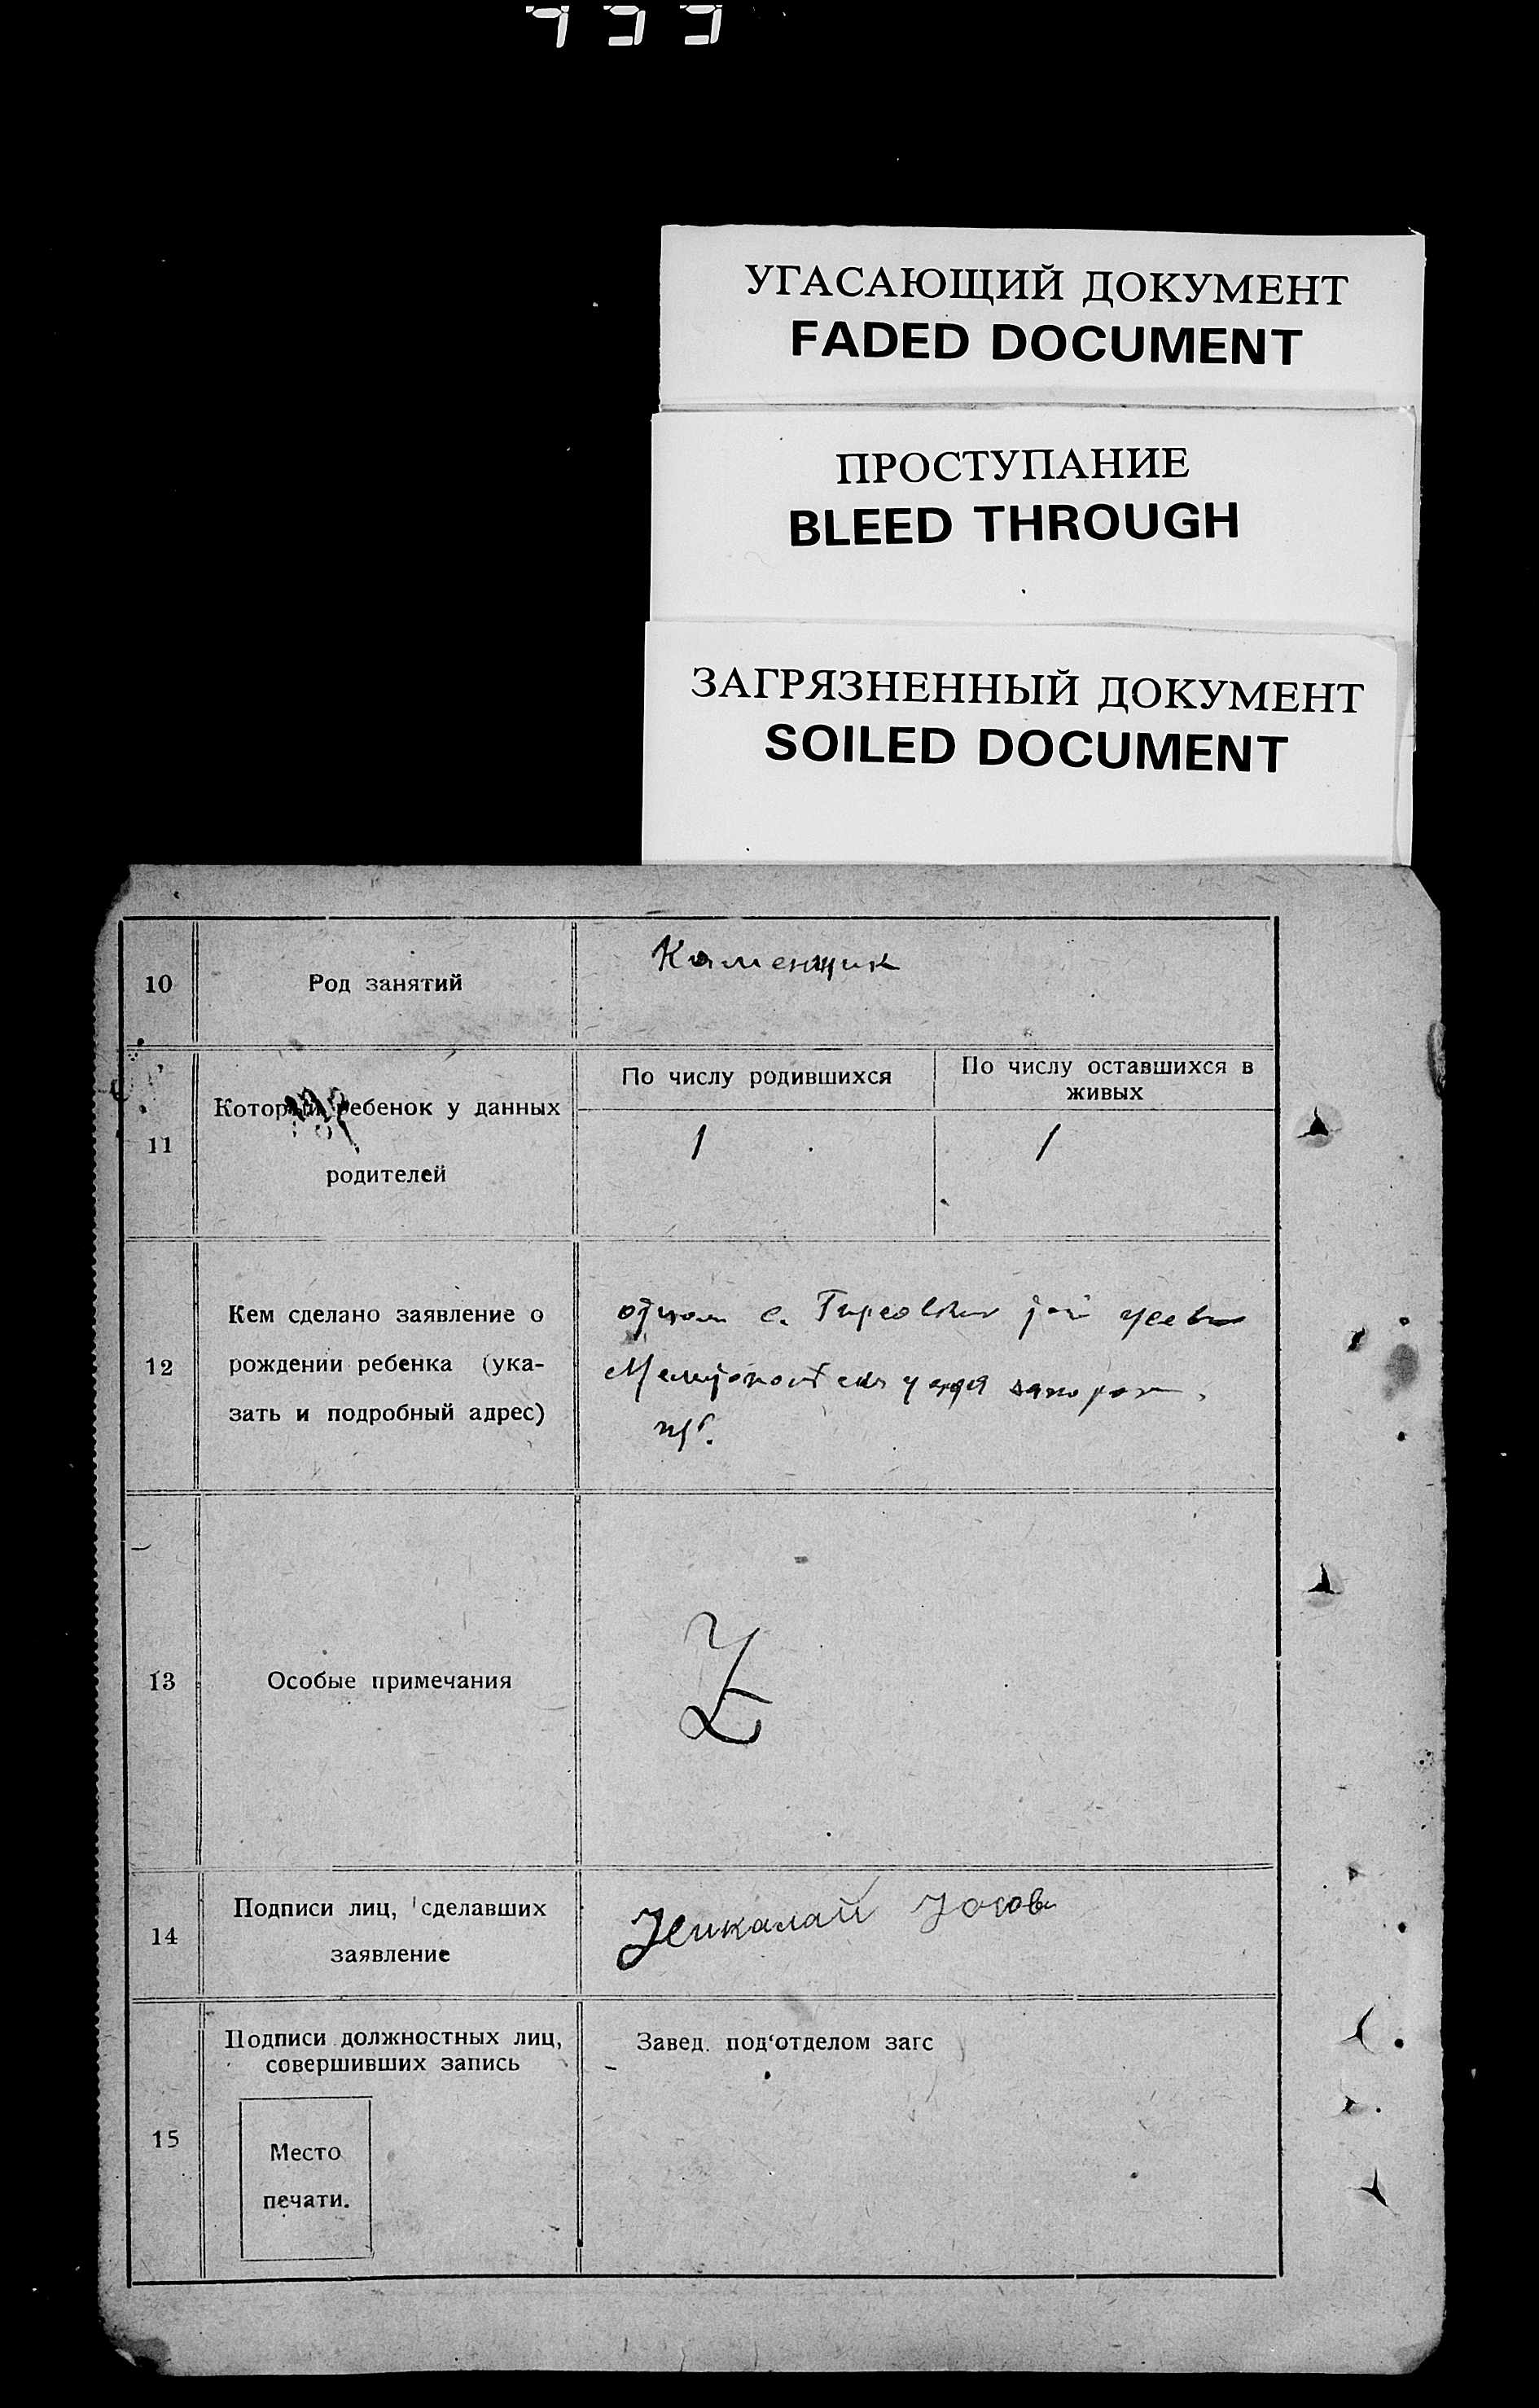 УГАСАЮЩИЙ ДОКУМЕНТ
FADED DOCUMENT
ПРОСТУПАНИЕ
BLEED THROUGH
ЗАГРЯЗНЕННЫЙ ДОКУМЕНТ
SOILED DOCUMENT
10
Род занятий
Каменщик
11
Который ребенок у данных
родителей
По числу родившихся
По числу оставшихся в
живых
1
1
12
Кем сделано заявление о
рождении ребенка (ука-
зать и подробный адрес)
отцом с.
уезда
13
Особые примечания
14
Подписи лиц, сделавших
заявление
15
Подписи должностных лиц,
совершивших запись
Место
печати.
Завед. под'отделом загс